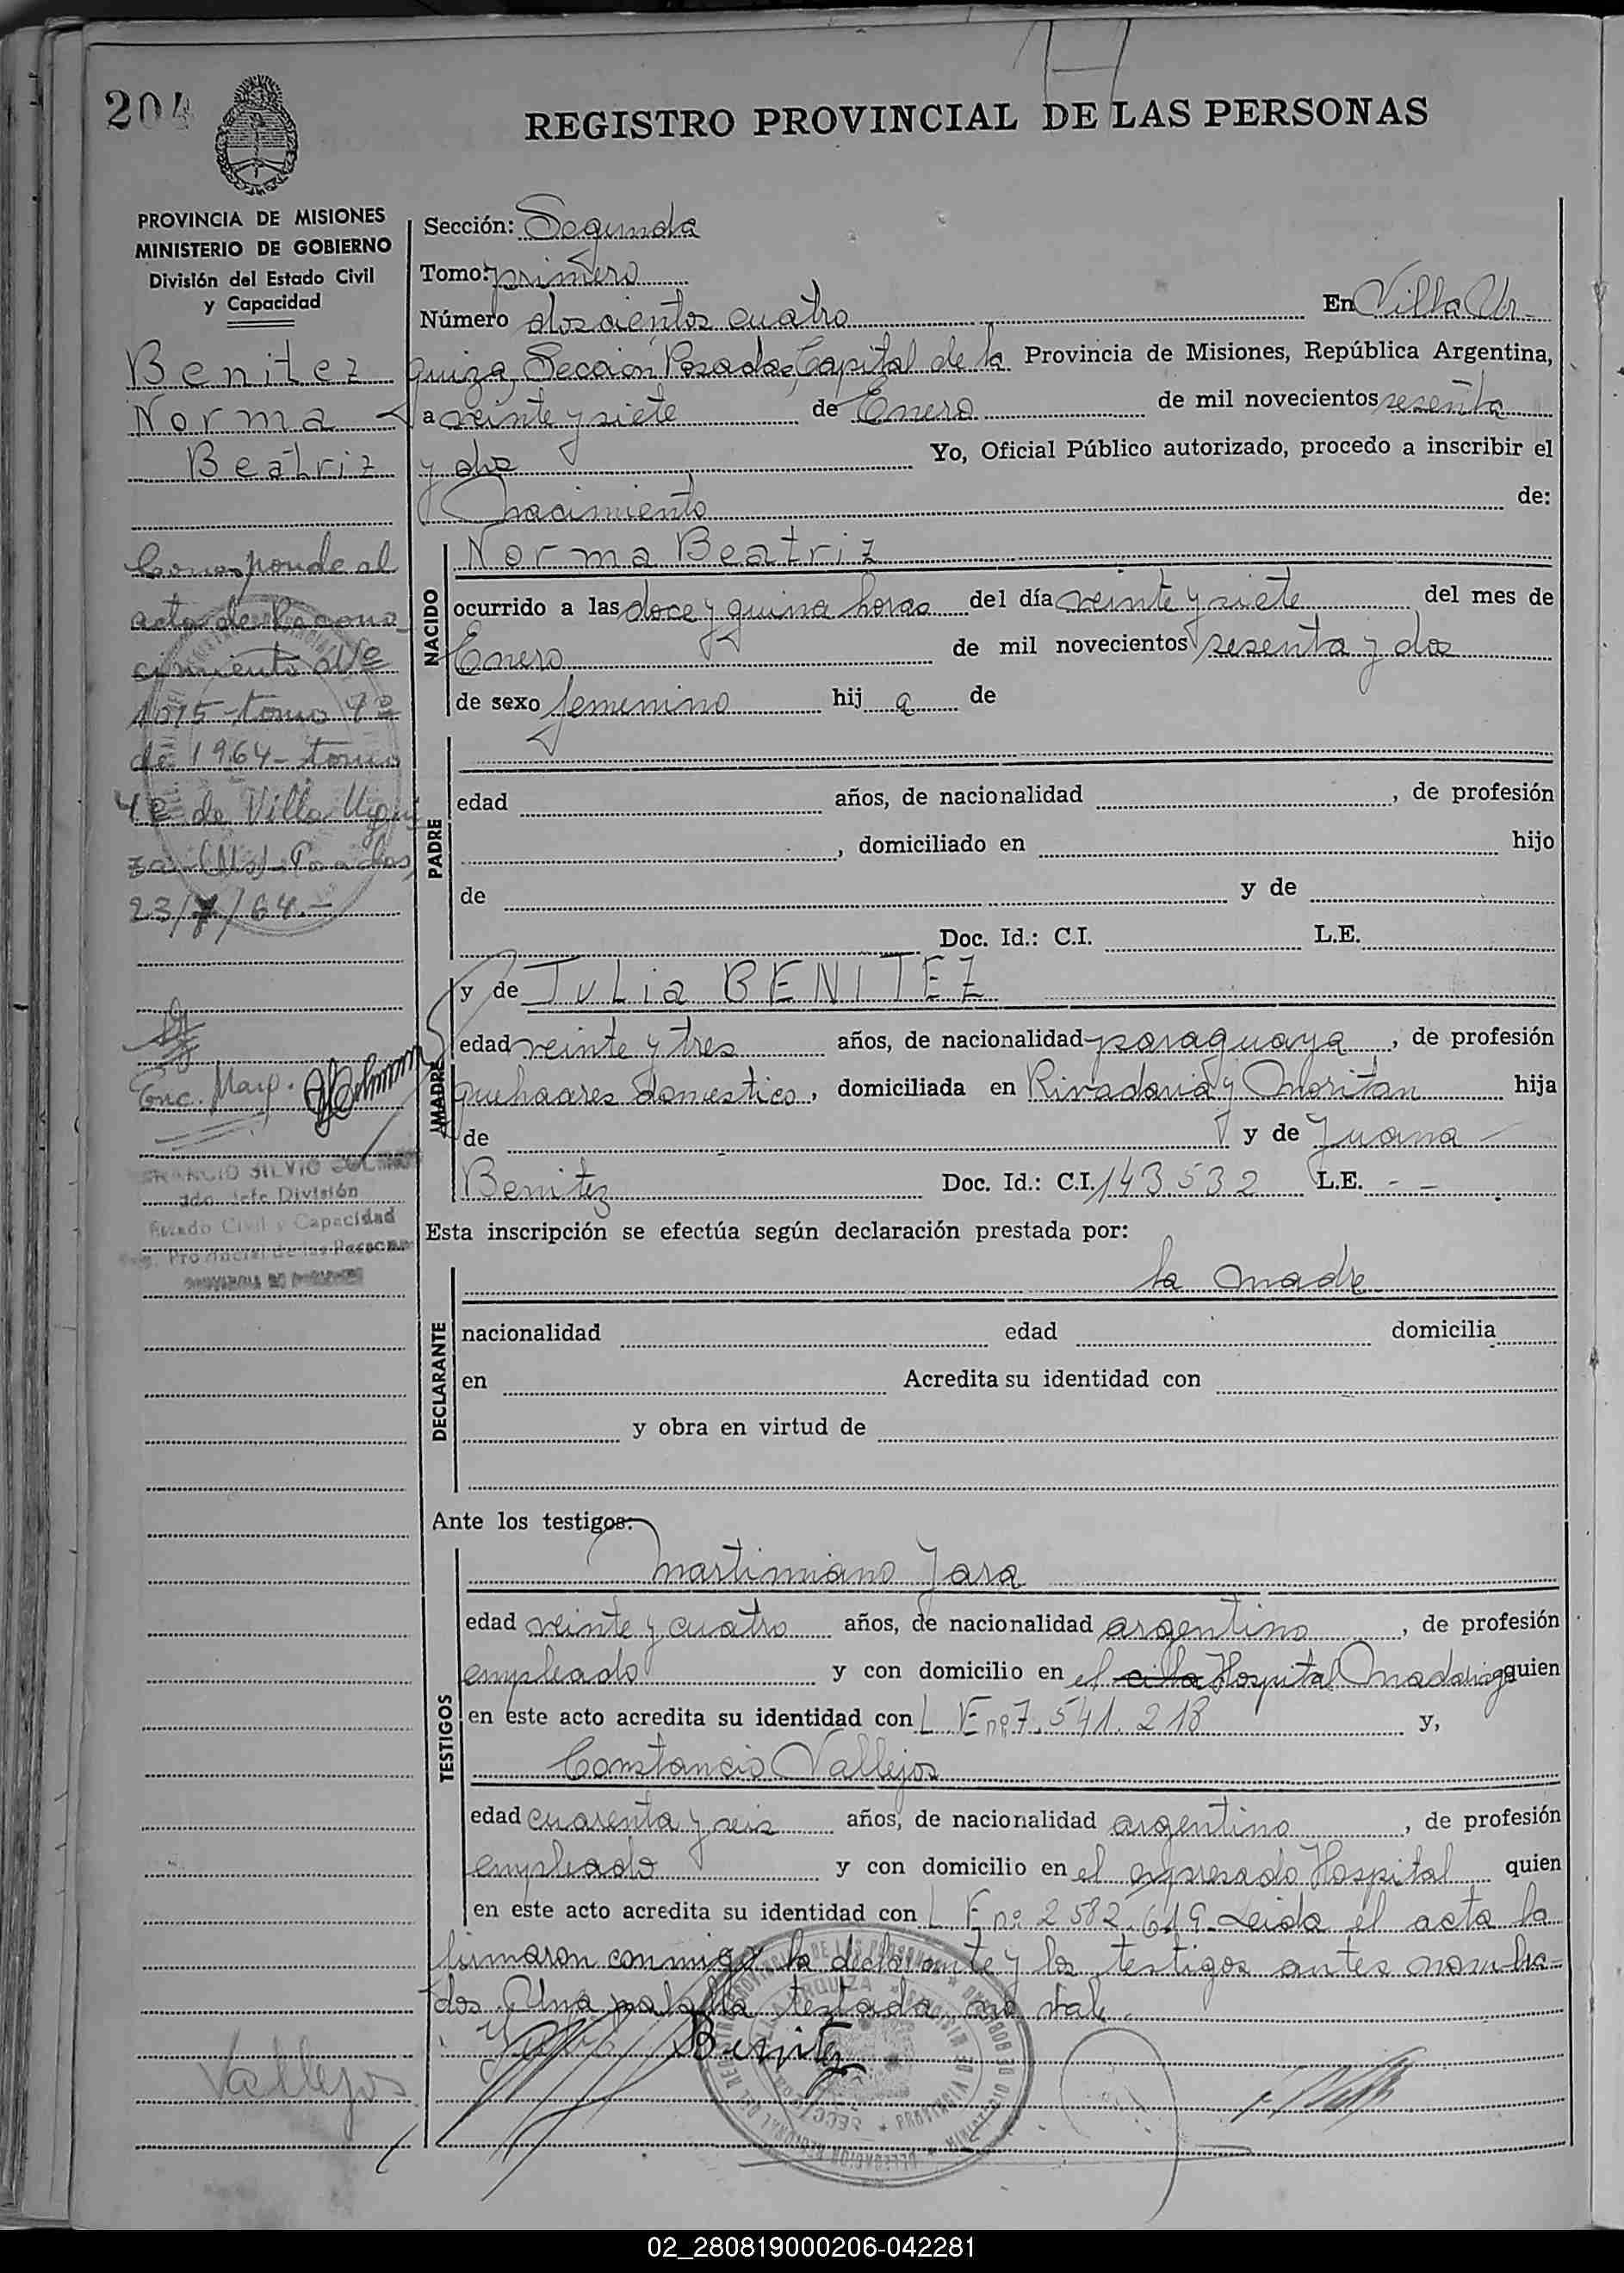 204
REGISTRO PROVINCIAL DE LAS PERSONAS
PROVINCIA DE MISIONES
MINISTERIO DE GOBIERNO
División del Estado Civil
y Capacidad
Benitez
Norma
Beatriz
Corresponde al
acta de Recono_
cimiento Nº
1075 - tomo 4º
de 1964 - tomo
4º de Villa Urqui
za (Ms) - Posadas,
23/7/64.-
Enc. Marg.
SILVIO
Jefe División
Estado Civil y Capacidad
Reg. Provincial de las Personas
PROVINCIA DE MISIONES
Vallejos
Sección: Segunda
Tomo: primero
Número doscientos cuatro En Villa Ur-
quiza, Sección Posadas, Capital de la Provincia de Misiones, República Argentina,
a veinte y siete de Enero de mil novecientos sesenta
y dos Yo, Oficial Público autorizado, procedo a inscribir el
Nacimiento de:
NACIDO
Norma Beatriz
ocurrido a las doce y quince horas del día veinte y siete del mes de
Enero de mil novecientos sesenta y dos
de sexo femenino hij a de
PADRE
edad años, de nacionalidad , de profesión
, domiciliado en hijo
de y de
Doc. Id.: C.I. L.E.
MADRE
y de Julia BENITEZ
edad veinte y tres años, de nacionalidad paraguaya, de profesión
quehaceres domestico, domiciliada en Rivadavia y Moritan hija
de y de Juana
Benitez Doc. Id.: C.I. 143.532 L.E. - -
Esta inscripción se efectúa según declaración prestada por:
DECLARANTE
la madre
nacionalidad edad domicilia
en Acredita su identidad con
y obra en virtud de
Ante los testigos:
TESTIGOS
Martimiano Jara
edad veinte y cuatro años, de nacionalidad argentino, de profesión
empleado y con domicilio en el Hospital Madariaga quien
en este acto acredita su identidad con L.E nº 7.541.218 y,
Constancio Vallejos
edad cuarenta y seis años, de nacionalidad argentino, de profesión
empleado y con domicilio en el expresado Hospital quien
en este acto acredita su identidad con L E nº 2582.619. Leida el acta la
firmaron conmigo la declarante y los testigos antes nombra-
dos. Una palabra testada no vale.
Benitez
02_280819000206-042281